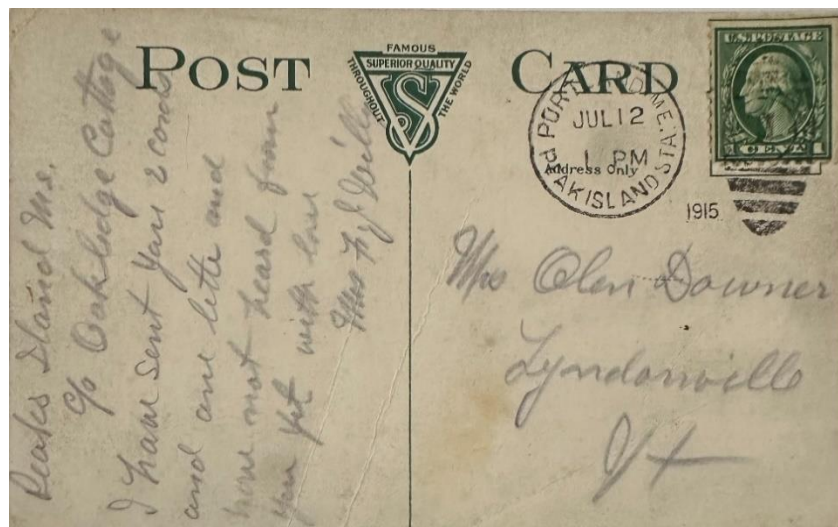 POST CARD
FAMOUS
SUPERIOR QUALITY
THROUGHOUT
THE WORLD
U.S. POSTAGE
1 CENT 1
PORTLAND, ME.
JUL 12
1 PM
PEAK ISLAND STA.
1915
Address only
Peaks Iland Me.
c/o Oaklodge Cottage
I have sent you 2 cards
and one lette and
have not heard from
you yet with love
Mrs
Mrs Olen Downer
Lyndonville
Vt